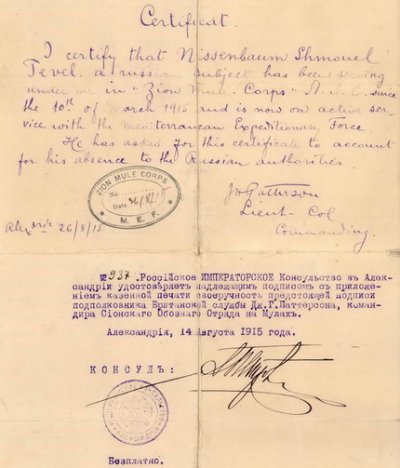 Certificat.
I certify that Nissenbaum Shmouel
Tevel. a russian subject has been serving
under me in "Zion Mule Corps" A.S.C. since
the 10th of March 1915 and is now on active ser-
vice with the Mediterranean Expeditionary Force.
He has asked for this certificate to account
for his absence to the Russian authorities.
JHPatterson
Lieut-Col
Commanding.
ZION MULE CORPS
No
Date
M.E.F.
26/8/15
№ 937. Россійское ИМПЕРАТОРСКОЕ Консульство въ Алек-
сандріи удостовѣряетъ надлежащимъ подписомъ съ приложе-
ніемъ казенной печати своеручность предстоящей подписи
подполковника Британской службы Дж.Г.Паттерсона, Коман-
дира Сіонскаго Обознаго Отряда на Мулахъ.
Александрія, 14 Августа 1915 года.
КОНСУЛЪ:
Безплатно.